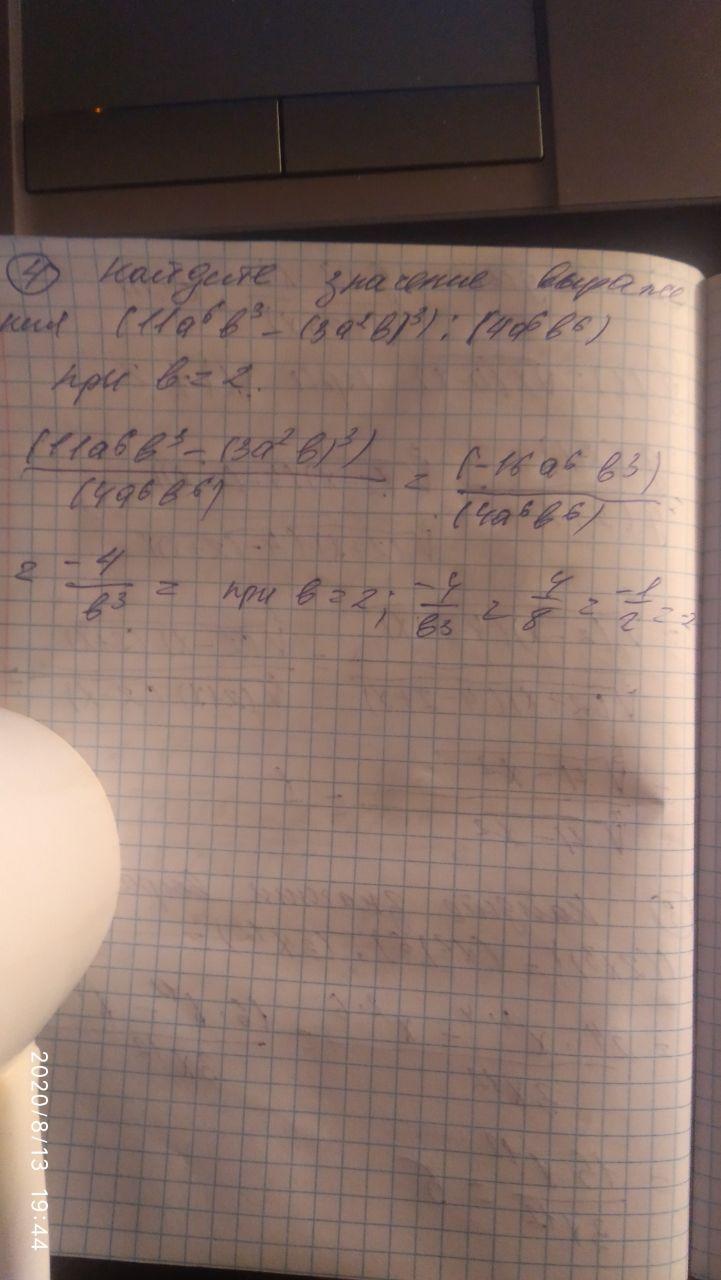 ④ Найдите значение выраже
ния (11a⁶b³ - (3a²b)³) : (4a⁶b⁶)
при b = 2.
(11a⁶b³ - (3a²b)³) / (4a⁶b⁶) = (-16a⁶b³) / (4a⁶b⁶)
= -4/b³ = при b = 2; -4/b³ = 4/8 = -1/2 =
2020/8/13 19:44